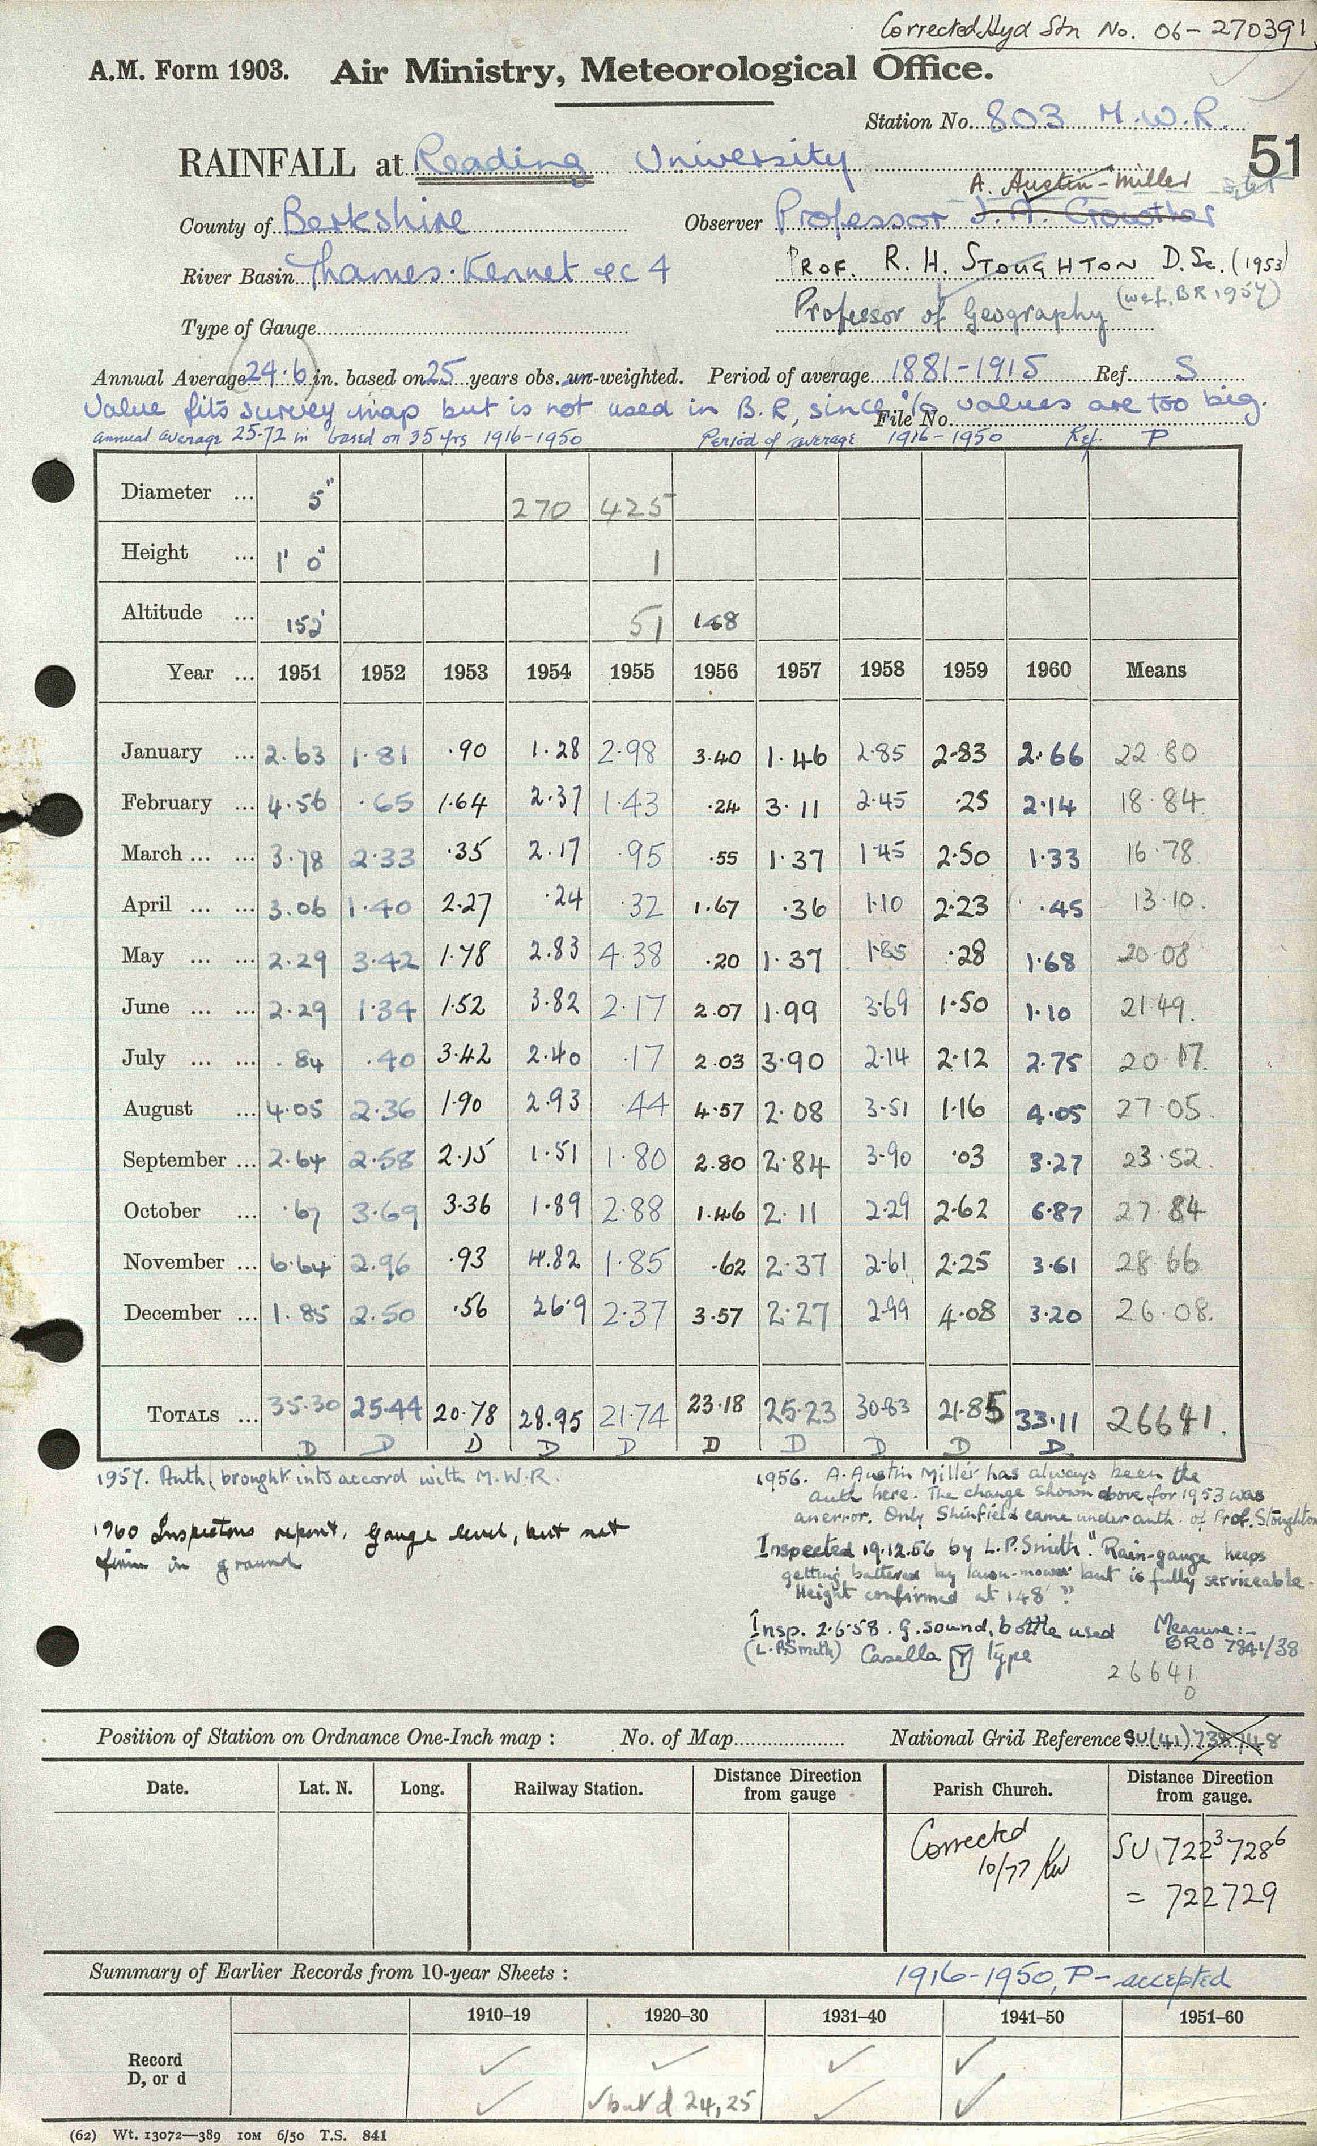 Corrected Hyd Stn No. 06-270391
A.M. Form 1903. Air Ministry, Meteorological Office.
Station No. 803 M.W.R.
51
RAINFALL at Reading University
A. Austin-Miller
County of Berkshire Observer Professor J. A. Crowther
River Basin Thames. Kennet &c 4 PROF. R. H. STOUGHTON D.Sc. (1953)
Professor of Geography (wef. BR 1957)
Type of Gauge
Annual Average 24.6 in. based on 25 years obs. un-weighted. Period of average 1881-1915 Ref. S
Value fits survey map but is not used in B.R, since % values are too big.
File No.
Annual average 25.72 in based on 35 yrs 1916-1950 Period of average 1916-1950 Ref. P
Diameter ... 5" 270 425
Height ... 1' 0" 1
Altitude ... 152' 51 148
Year ... 1951 1952 1953 1954 1955 1956 1957 1958 1959 1960 Means
January ... 2.63 1.81 .90 1.28 2.98 3.40 1.46 2.85 2.83 2.66 22.80
February ... 4.56 .65 1.64 2.37 1.43 .24 3.11 2.45 .25 2.14 18.84
March ... ... 3.78 2.33 .35 2.17 .95 .55 1.37 1.45 2.50 1.33 16.78
April ... ... 3.06 1.40 2.27 .24 .32 1.67 .36 1.10 2.23 .45 13.10.
May ... ... 2.29 3.42 1.78 2.83 4.38 .20 1.37 1.85 .28 1.68 20.08
June ... ... 2.29 1.34 1.52 3.82 2.17 2.07 1.99 3.69 1.50 1.10 21.49.
July ... ... .84 .40 3.42 2.40 .17 2.03 3.90 2.14 2.12 2.75 20.17.
August ... 4.05 2.36 1.90 2.93 .44 4.57 2.08 3.51 1.16 4.05 27.05.
September ... 2.64 2.58 2.15 1.51 1.80 2.80 2.84 3.90 .03 3.27 23.52.
October ... .67 3.69 3.36 1.89 2.88 1.46 2.11 2.29 2.62 6.87 27.84
November ... 6.64 2.96 .93 4.82 1.85 .62 2.37 2.61 2.25 3.61 28.66
December ... 1.85 2.50 .56 26.9 2.37 3.57 2.27 2.99 4.08 3.20 26.08.
TOTALS ... 35.30 25.44 20.78 28.95 21.74 23.18 25.23 30.83 21.85 33.11 26641.
D D D D D D D D D D
1957. Auth. brought into accord with M.W.R.
1960 Inspectors report. Gauge level, but not
firm in ground
1956. A. Austin Miller has always been the
auth here. The change shown above for 1953 was
an error. Only Shinfield came under auth. of Prof. Stoughton
Inspected 19.12.56 by L.P. Smith "Rain-gauge keeps
getting battered by lawn-mower but is fully serviceable.
Height confirmed at 148'"
Insp. 2.6.58. G. sound, bottle used Measure:-
(L.P. Smith) Casella type BRO 7841/38
26641
0
Position of Station on Ordnance One-Inch map : No. of Map National Grid Reference SU(41) 738748
Date. Lat. N. Long. Railway Station. Distance Direction from gauge Parish Church. Distance Direction from gauge.
Corrected SU 722³ 728⁶
10/77
= 722729
Summary of Earlier Records from 10-year Sheets : 1916-1950, P - accepted
1910-19 1920-30 1931-40 1941-50 1951-60
Record ✓ ✓ ✓ ✓
D, or d ✓ ✓ but d 24, 25 ✓ ✓
(62) Wt. 13072—389 10M 6/50 T.S. 841